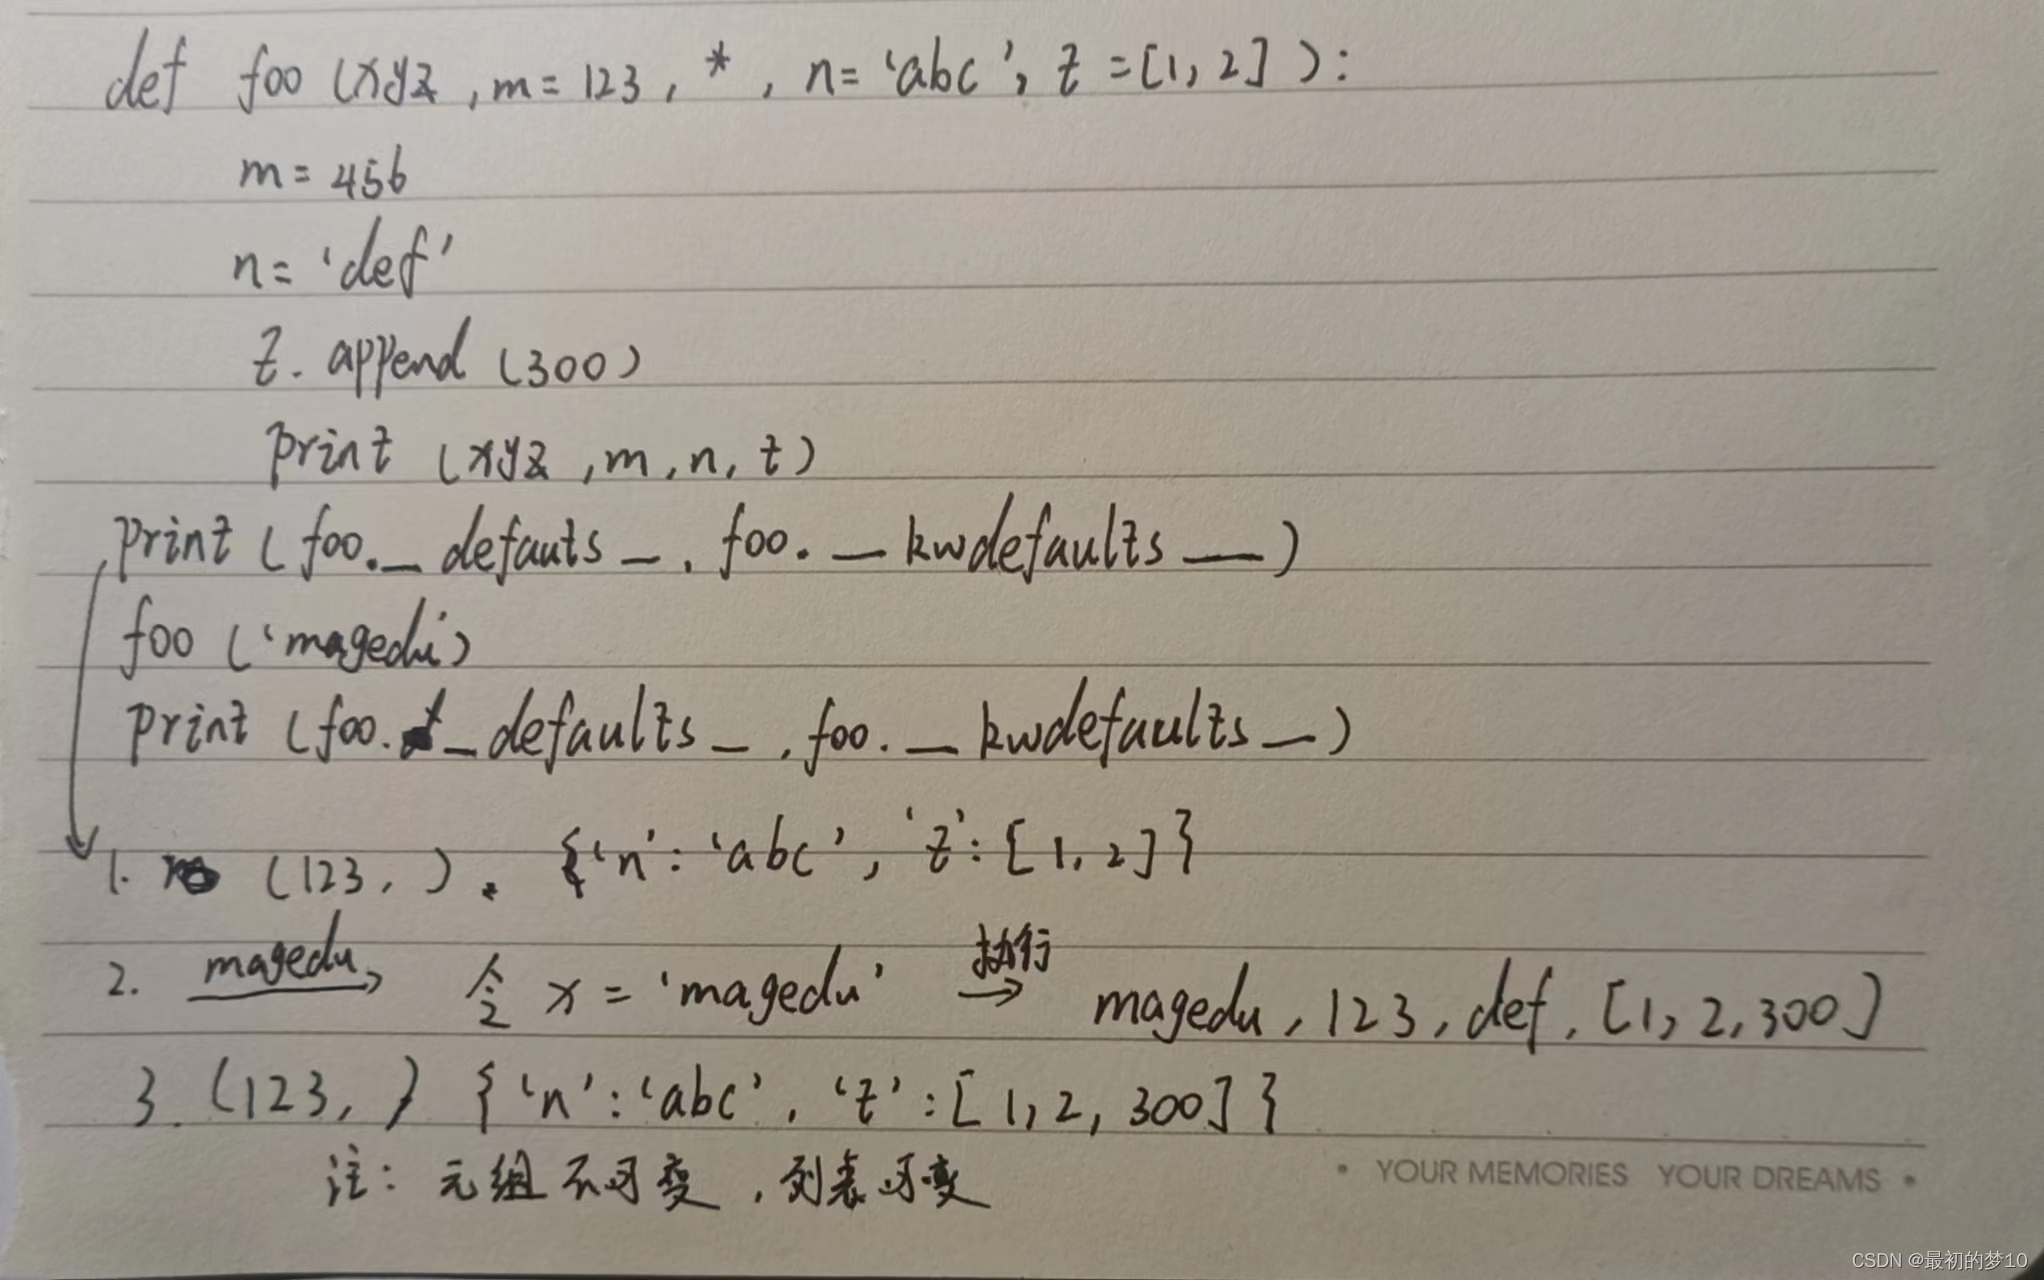 def foo (xyz, m=123, *, n='abc', t=[1,2]):
m=456
n='def'
t.append(300)
print(xyz,m,n,t)
print(foo.__defauts__, foo.__kwdefaults__)
foo('magedu')
print(foo.__defaults__, foo.__kwdefaults__)
1. (123,), {'n':'abc', 't':[1,2]}
2. magedu 令 x='magedu' 执行→ magedu, 123, def, [1,2,300]
3. (123,) {'n':'abc', 't':[1,2,300]}
注: 元组不可变, 列表可变
• YOUR MEMORIES YOUR DREAMS •
CSDN @最初的梦10